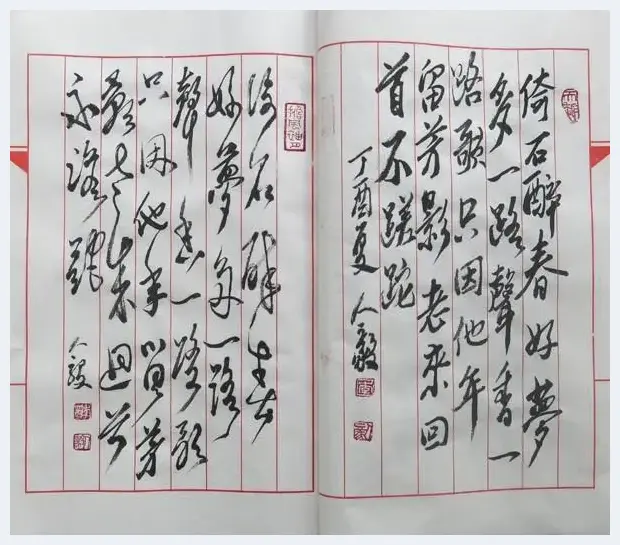 倚石醉春好夢
多一路聲香一
路歌只因他年
留芳影老來回
首不蹉跎
丁酉夏 人毅
倚石醉春
好夢多一路
聲香一路歌
只因他年留芳
影老來迴首
不蹉跎
人毅